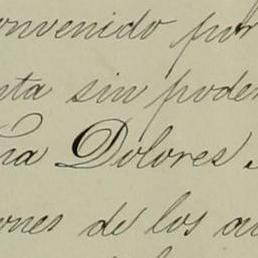 onvenido por
nta sin poder
ña Dolores
ones de los au